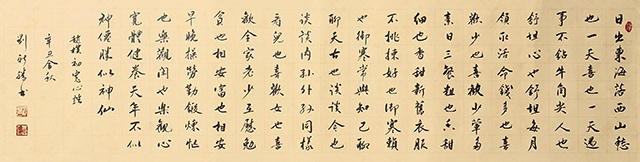 日出東海落西山愁
也一天喜也一天遇
事不钻牛角尖人也
舒坦心也舒坦每月
領取活命錢多也喜
歡少也喜歡少葷多
素日三餐粗也香甜
細也香甜新舊衣服
不挑揀好也御寒賴
也御寒常與知己聊
聊天古也談談今也
談談内孫外孫同樣
看兒也喜歡女也喜
歡全家老少互慰勉
貧也相安富也相安
早晚操勞勤鍛煉忙
也樂觀閑也樂觀心
寬體健養天年不似
神僊勝似神仙
趙樸初寬心謠
辛丑金秋